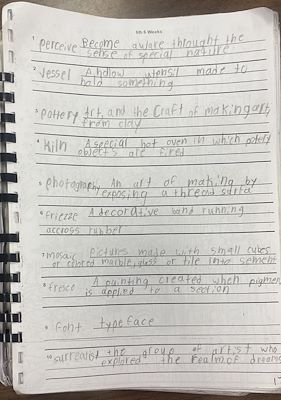 5th 6 Weeks
1 perceive Become aware throught the
sense of special nature
2 Vessel A hollow utensil made to
hold something
3 Pottery Art, and the Craft of making art
from clay
4 Kiln A special hot oven in which pottery
objects are fired
5 photography An art of making by
exposing a
6 friezze A decorative band running
accross
7 mosaic Pictures made with small cubes
or colored marble, glass or tile into sement
8 fresco A painting created when pigment
is applied to a section
9 Font typeface
10 surrealist the group of artist who
explored the realm of dreams